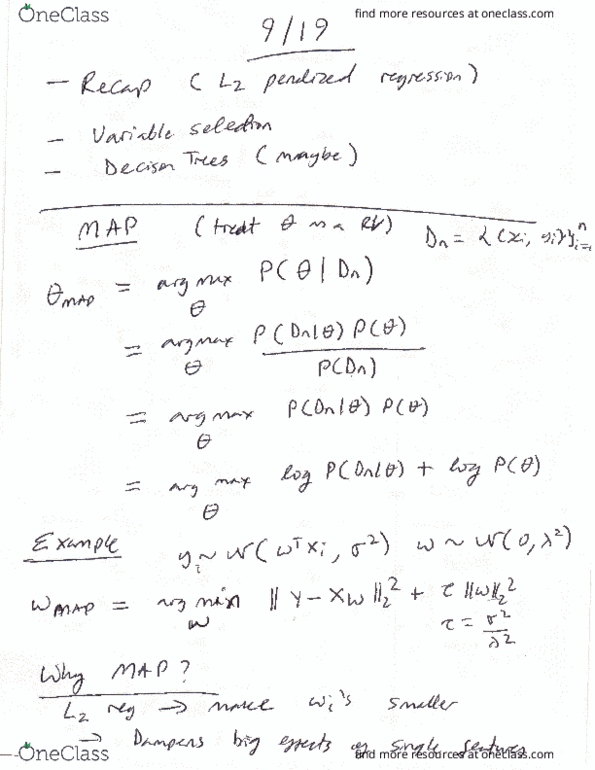 OneClass
find more resources at oneclass.com
9/19
- Recap ( L2 penalized regression )
- Variable selection
- Decision Trees ( maybe )
MAP ( treat θ as a RV ) Dn = { (xi, yi) }ⁿi=1
θMAP = arg max θ P( θ | Dn )
= arg max θ P( Dn | θ ) P( θ ) / P( Dn )
= arg max θ P( Dn | θ ) P( θ )
= arg max θ log P( Dn | θ ) + log P( θ )
Example yi ~ N( wᵀxi , σ² ) w ~ N( 0, λ² )
wMAP = arg min w || Y - Xw ||₂² + τ || w ||₂²
τ = σ² / λ²
Why MAP?
L2 reg → make wi's smaller
→ Dampens big effects of single features
OneClass
find more resources at oneclass.com